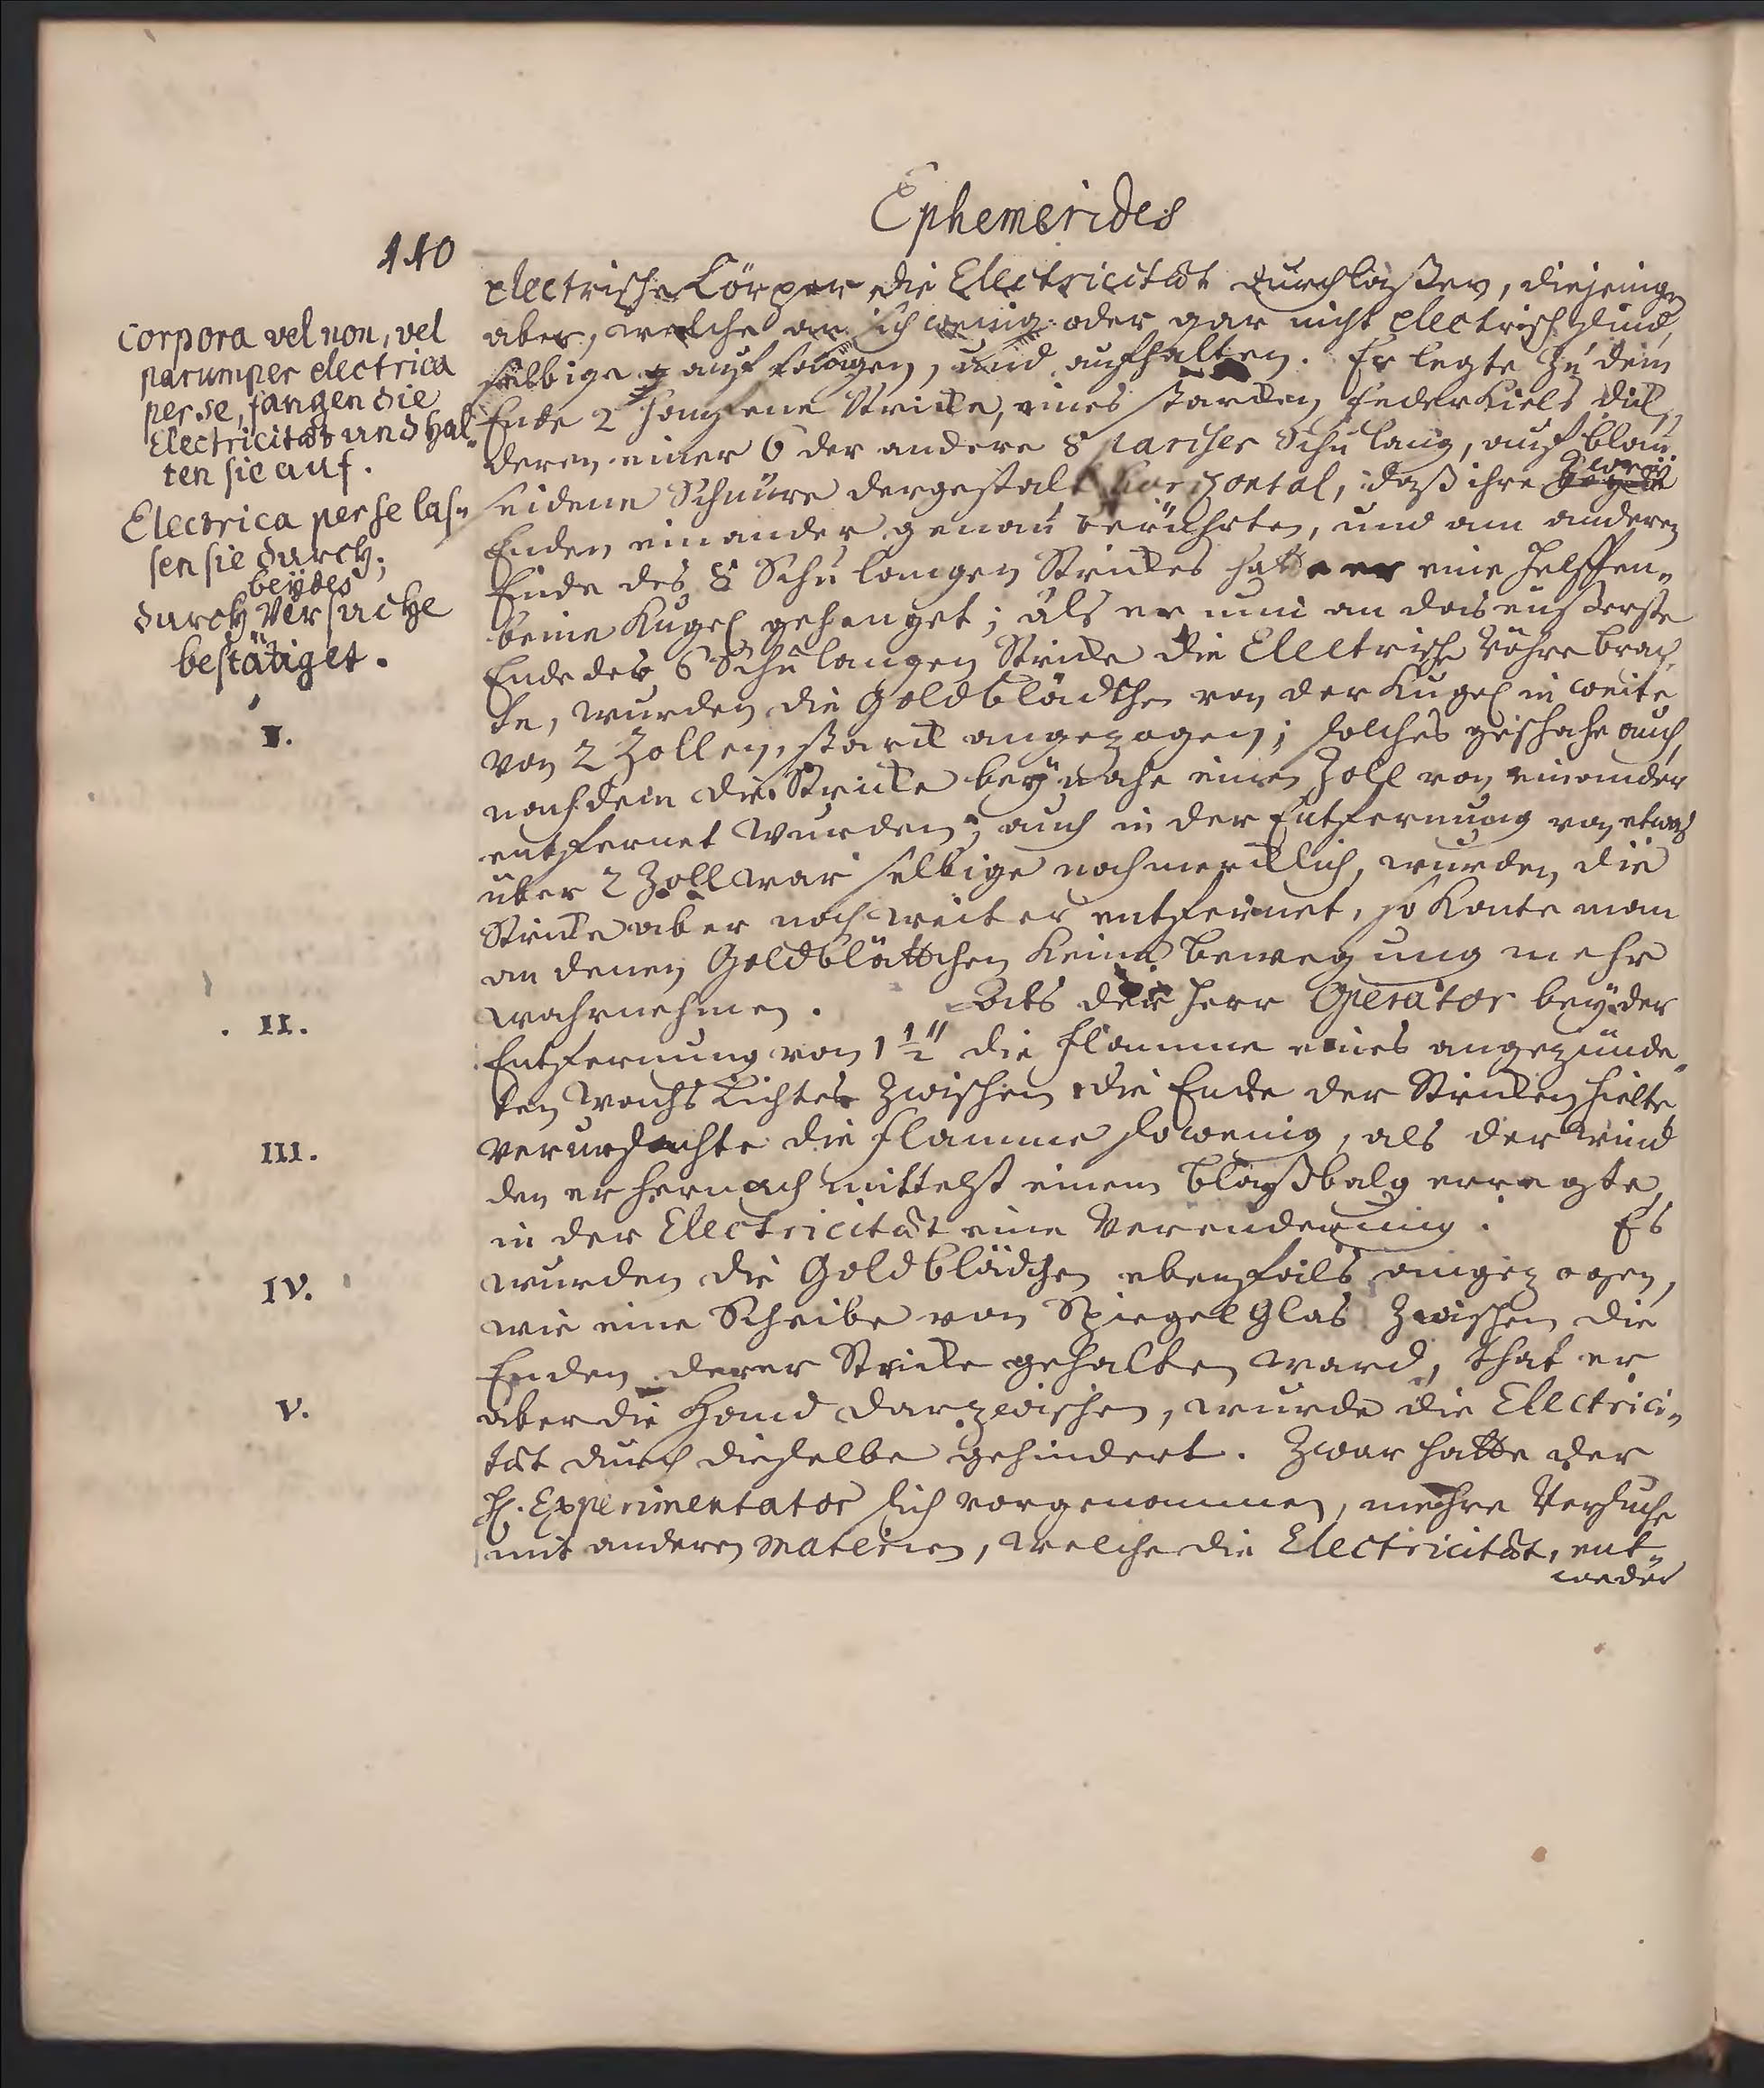 Ephemerides
110
Corpora vel non, vel
parumper electrica
per se, fangen die
Electricitæt und hal„
ten sie auf.
Electrica per se las„
sen sie durch;
beÿdes
durch Versuche
bestätiget.
electrische Cörper die Electricitæt durchlaßen, diejenigen
aber, welche an sich wenig oder gar nicht electrisch sind,
selbige auffangen, und aufhalten. Er legte zu dem
Ende 2 hanfene Stricke, eines starcken Federkiels dick,
deren einer 6 der andere 8 pariser Schu lang, auf blau
seidene Schnüre dergestalt horizontal, daß ihre zweÿ
Enden einander genau berührten, und am anderen
Ende des 8 Schu langen Strickes hatte er eine helffen„
beine Kugel gehenget; als er nun an das eußerste
Ende des 6 Schu langen Stricks die Electrische Röhre brach„
te, wurden die Goldblädchen von der Kugel in weite
von 2 Zollen, starck angezogen; solches geschahe auch,
nachdem die Stricke beÿnahe einen Zoll von einander
entfernet wurden; auch in der Entfernung von etwas
über 2 Zoll war selbige noch mercklich, wurden die
Stricke aber noch weiter entfernet, so konte man
an denen Goldblättchen keine bewegung mehr
wahrnehmen. Als der Herr Operator beÿ der
Entfernung von 1 1/2" die Flamme eines angezünde„
ten Wachs Lichtes zwischen die Ende der Stricken hielte
verursachte die Flamme so wenig, als der Wind
den er hernach mittelst einem Blaßbalg erregte,
in der Electricitæt eine Verenderung. Es
wurden die Goldblädchen ebenfals angezogen,
wie eine Scheibe von Spiegel Glas zwischen die
Enden derer Stricke gehalten ward, that er
aber die Hand darzwischen, wurde die Electrici„
tæt durch dieselbe gehindert. Zwar hatte der
H. Experimentator sich vorgenommen, mehre Versuche
mit anderen materien, welche die Electricitæt, ent„
weder
I.
II.
III.
IV.
V.